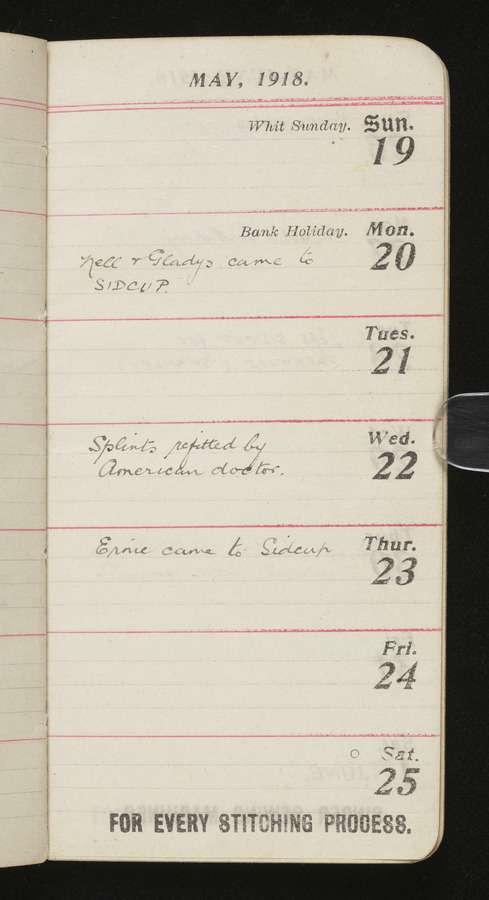 MAY, 1918.
Whit Sunday. Sun.
19
Bank Holiday. Mon.
20
Nell & Gladys came to
SIDCUP.
Tues.
21
Wed.
22
Splints refitted by
American doctor.
Thur.
23
Ernie came to Sidcup
Fri.
24
Sat.
25
FOR EVERY STITCHING PROCESS.